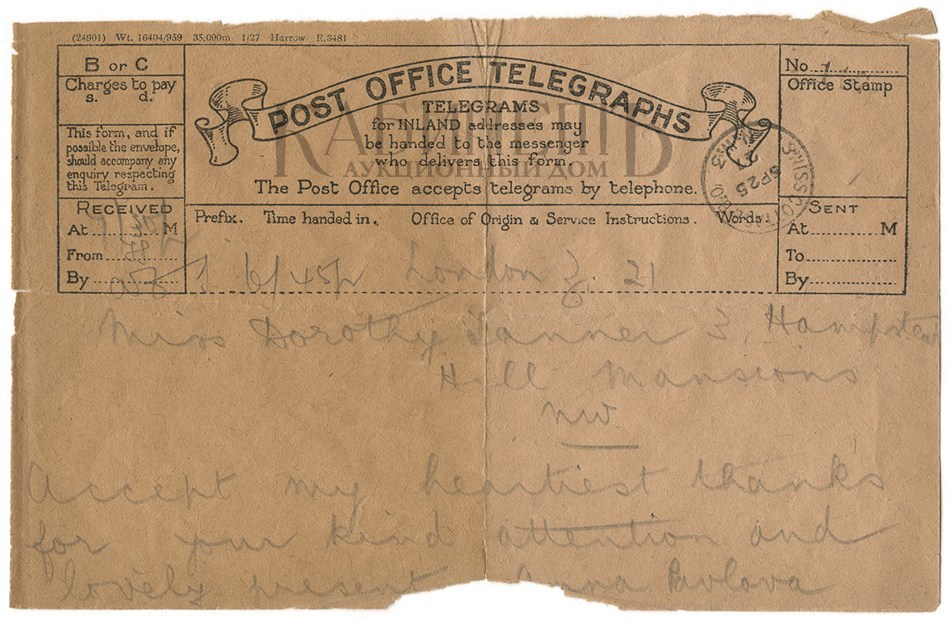 (24901) Wt. 16404/959 35,000m 1/27 Harrow E.3481
B or C
Charges to pay
s. d.
This form, and if
possible the envelope,
should accompany any
enquiry respecting
this Telegram.
RECEIVED
At M
From
By
POST OFFICE TELEGRAPHS
TELEGRAMS
for INLAND addresses may
be handed to the messenger
who delivers this form.
The Post Office accepts telegrams by telephone.
КАБИНЕТЪ
АУКЦИОННЫЙ ДОМ
Prefix. Time handed in. Office of Origin & Service Instructions. Words.
No.
Office Stamp
SP 25
SENT
At M
To
By
6/45p London 21
Miss Dorothy Tanner 3 Hampstead
Hill Mansions
NW
Accept my heartiest thanks
for your kind attention and
lovely present Anna Pavlova